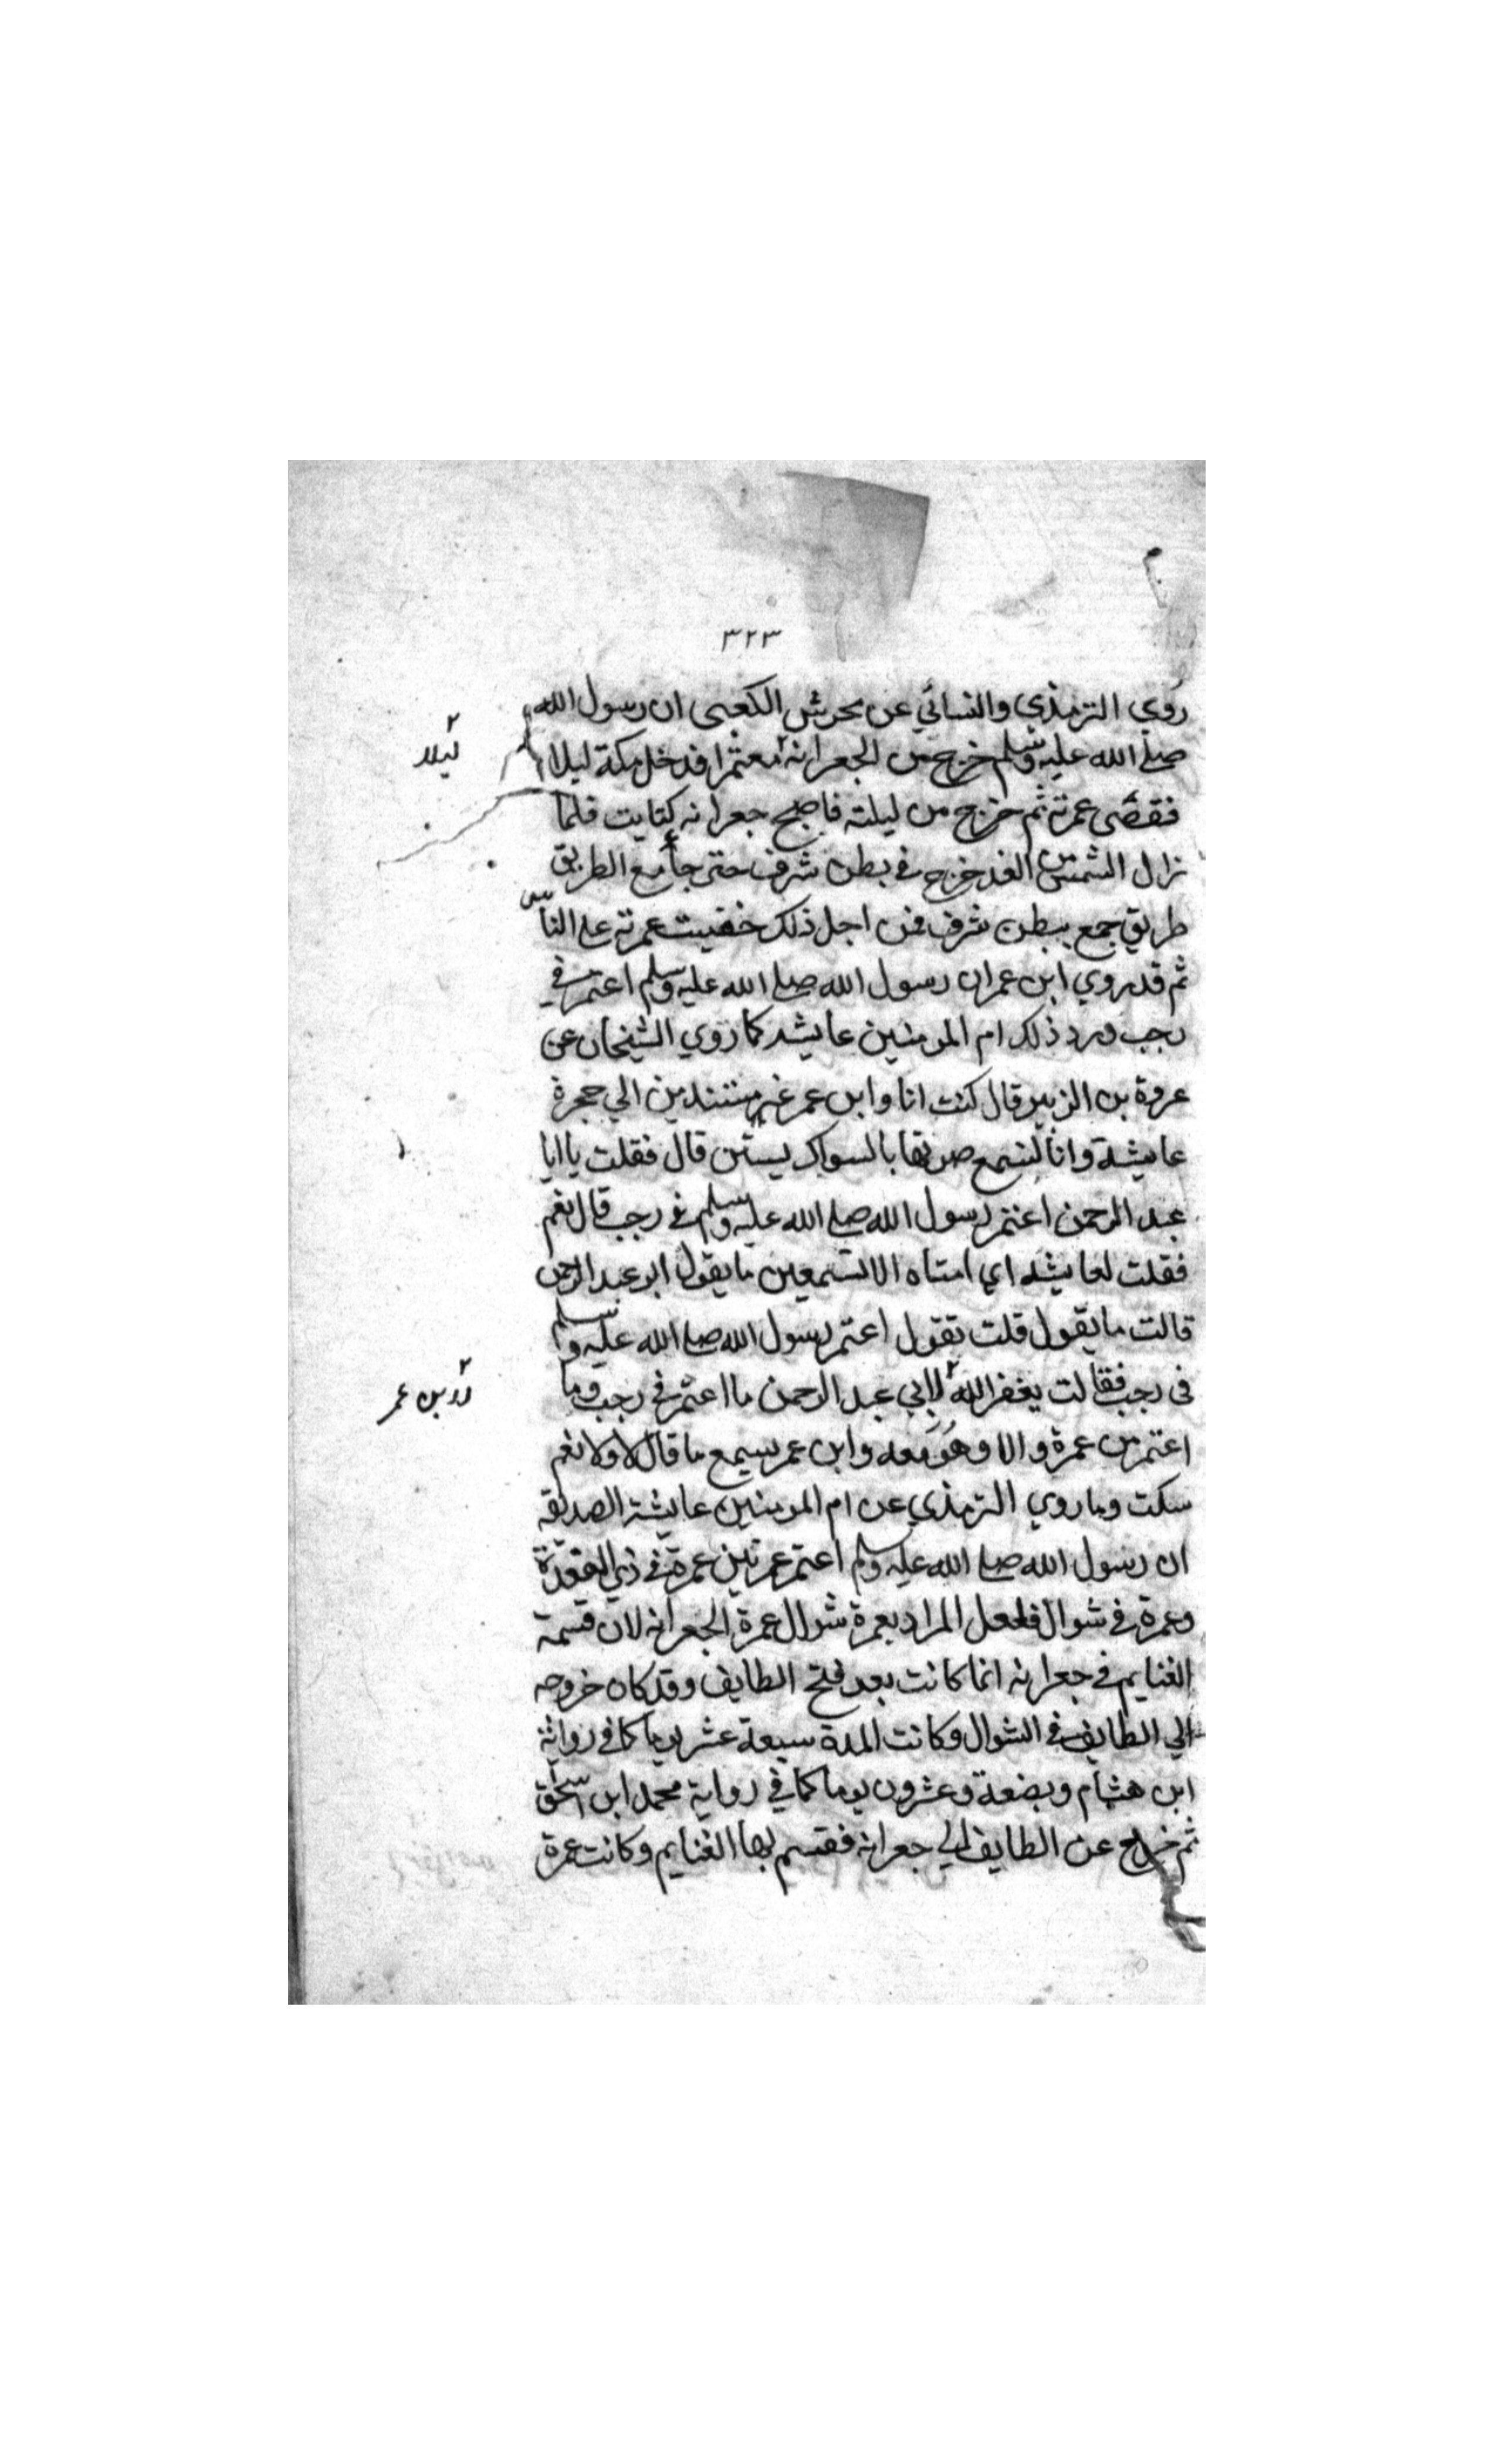 ٣٢٣
روي الترمذي والنسائي عن محرش الكعبى ان رسول الله
صلى الله عليه وسلم خرج من الجعرانه معتمرا فدخل مكة ليلا
ليلا
فقضى عمرته ثم خرج من ليلته فاصبح جعرانه كبايت فلما
زال الشمس من الغد خرج في بطن شرف حتى جامع الطريق
طريق جمع ببطن شرف فمن اجل ذلك خفيت عمرته على الناس
ثم قد روي ابن عمر ان رسول الله صلى الله عليه وسلم اعتمر في
رجب ورد ذلك ام المومنين عايشه كما روي الشيخان عن
عروة بن الزبير قال كنت انا وابن عمر مستندين الي حجرة
عايشة وانا لنسمع صوتها بالسواك يستن قال فقلت يا ابا
عبد الرحمن اعتمر رسول الله صلى الله عليه وسلم في رجب قال نعم
فقلت لعايشه اي امتاه الا تسمعين ما يقول ابو عبد الرحمن
قالت ما يقول قلت يقول اعتمر رسول الله صلى الله عليه وسلم
فى رجب فقالت يغفر الله لابي عبد الرحمن ما اعتمر في رجب وما
بن عمر
اعتمر من عمرة والا وهو معه وابن عمر يسمع ما قال لا ولا نعم
سكت وما روي الترمذي عن ام المومنين عايشة الصديقه
ان رسول الله صلى الله عليه وسلم اعتمر عمرتين عمرة في ذي القعدة
وعمرة في شوال فلعل المراد بعمرة شوال عمرة الجعرانه لان قسمة
الغنايم في جعرانه انما كانت بعد فتح الطايف وقد كان خروجه
الي الطايف في الشوال وكانت المدة سبعة عشر يوما كما في رواية
ابن هشام وبضعة وعشرون يوما كما في رواية محمد ابن اسحق
ثم خرج عن الطايف الي جعرانه فقسم بها الغنايم وكانت عمرة